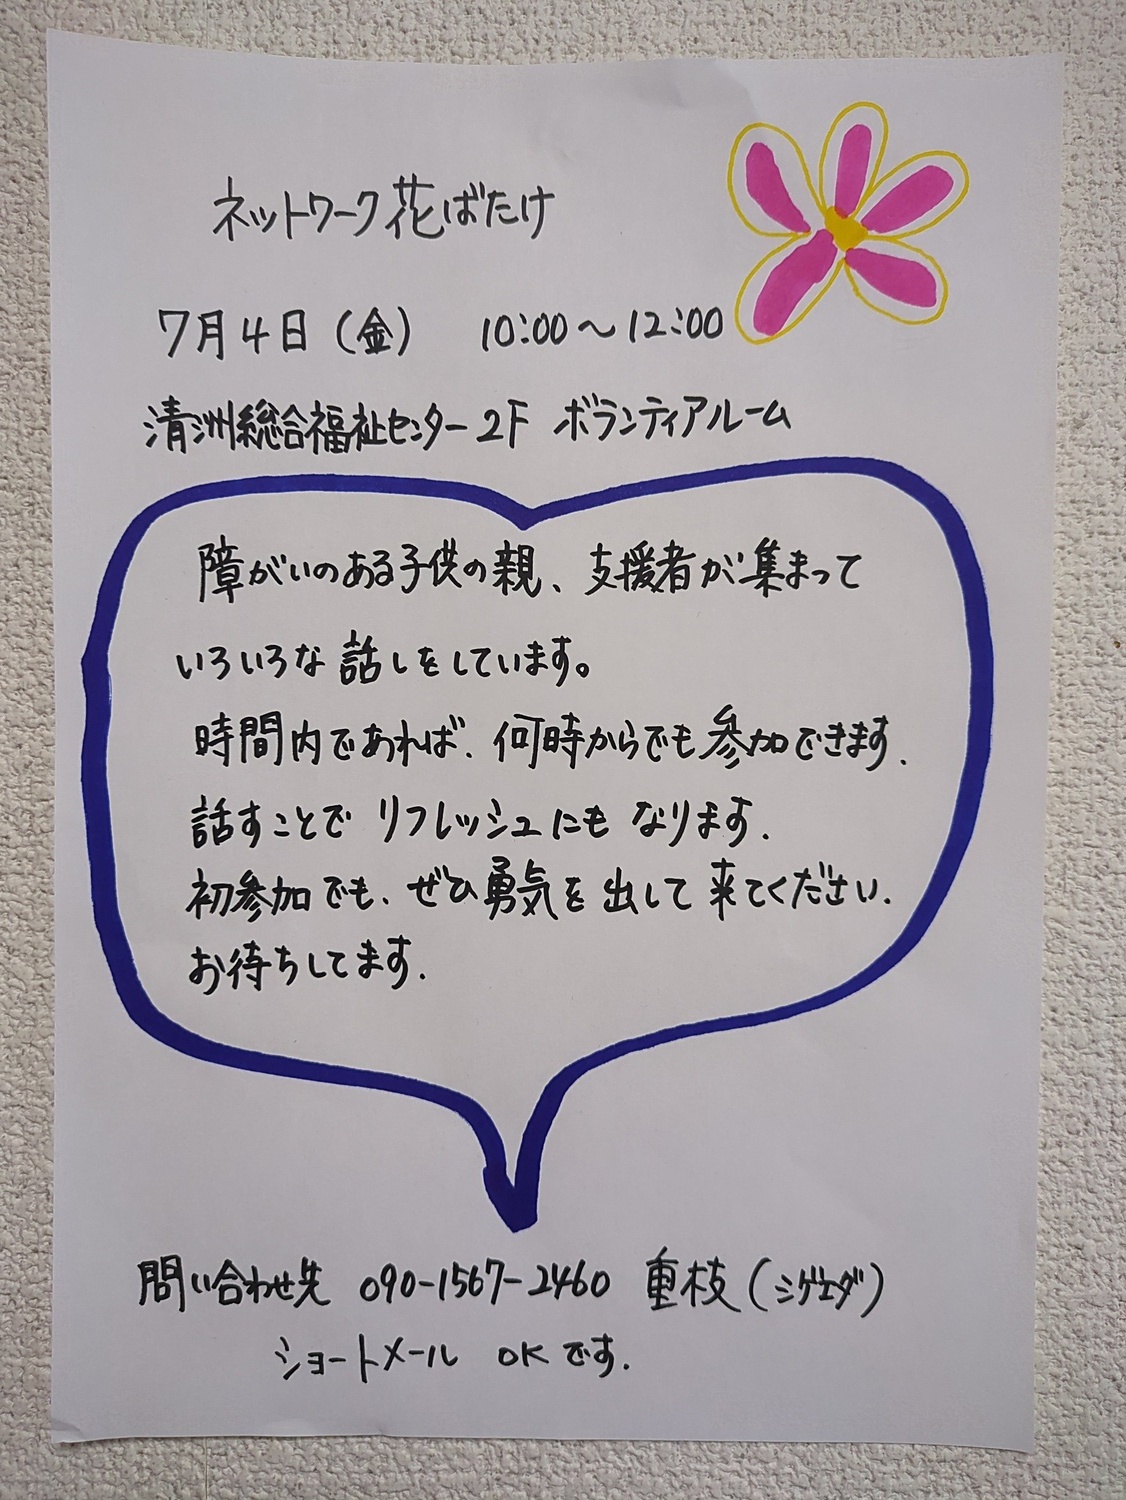 ネットワーク花ばたけ
7月4日（金） 10:00〜12:00
清洲総合福祉センター2F ボランティアルーム
障がいのある子供の親、支援者が集まって
いろいろな話しをしています。
時間内であれば、何時からでも参加できます.
話すことで リフレッシュにも なります.
初参加でも、ぜひ勇気を出して来てください.
お待ちしてます.
問い合わせ先 090-1567-2460 重枝（シゲエダ）
ショートメール OKです.